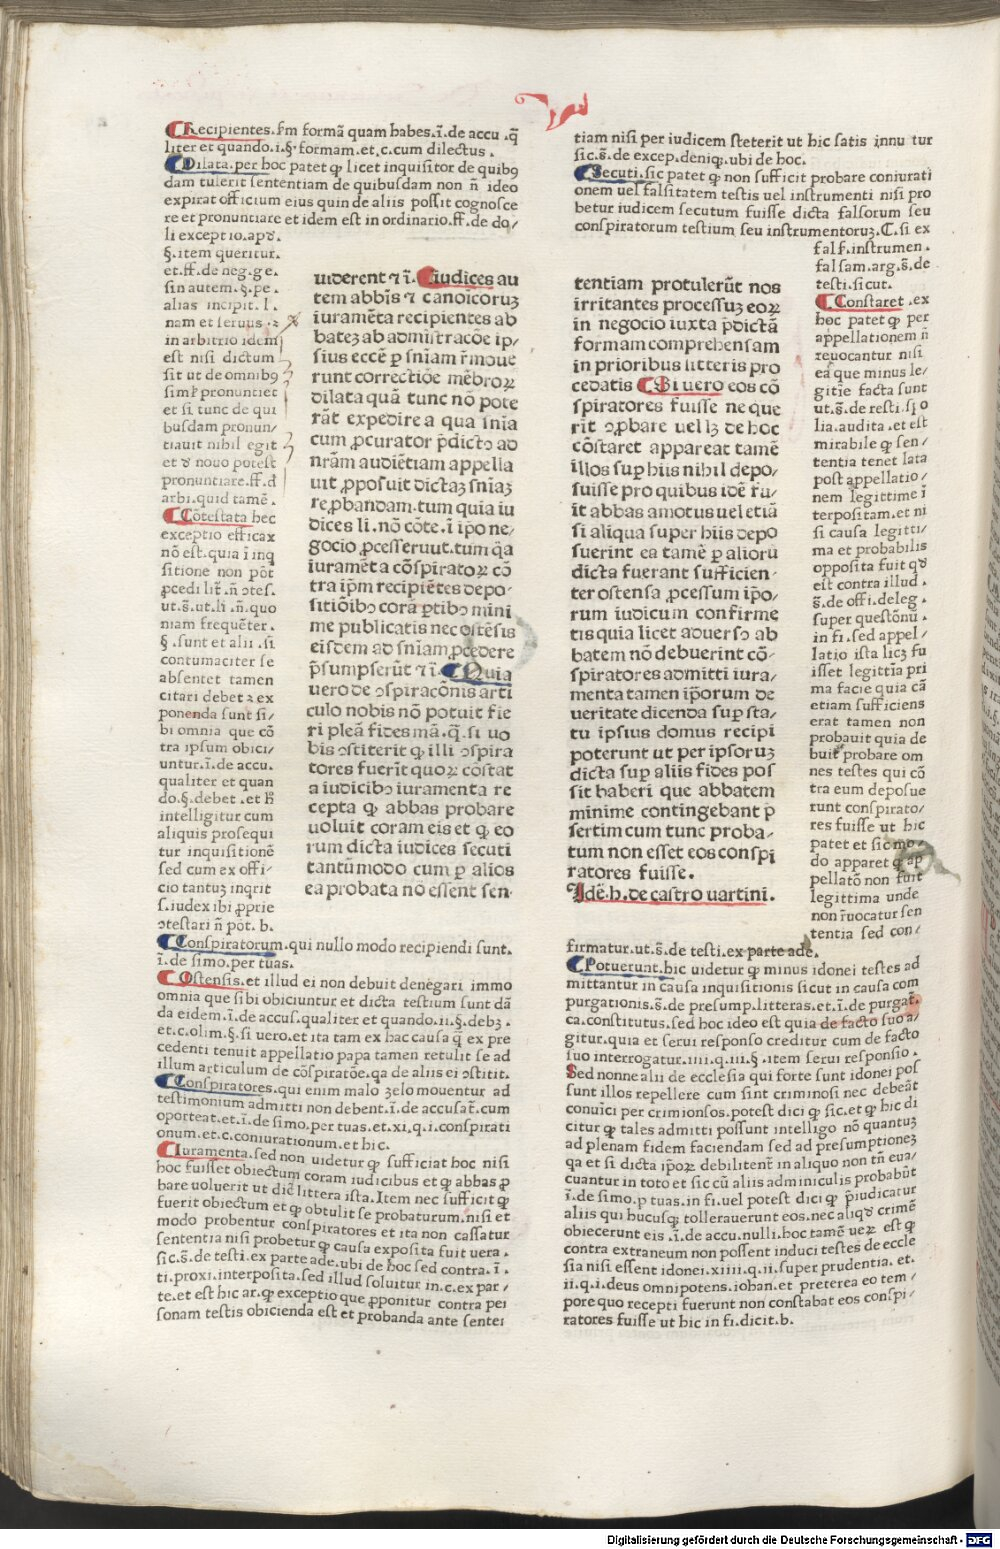 Recipientes.ſm formã quam habes.ĩ.de accu.q̃
liter et quando.i.§.formam.et.c.cum dilectus.
Dilata.per hoc patet ꝙ licet inquisitor de quibꝯ
dam tulerit sententiam de quibusdam non ñ ideo
expirat officium eius quin de aliis possit cognosce
re et pronunciare et idem est in ordinario.ff.de do/
li exceptio.apď.
§.item queritur.
et.ff.de neg.ge.
sin autem.§.pe.
alias incipit.l.
nam et seruus.
in arbitrio idem
est nisi dictum
sit ut de omnibꝯ
simĺ pronunciet
et si tunc de qui
busdam pronun/
tiauit nihil egit
et ď nouo potest
pronunciare.ff.d
arbi.quid tamẽ.
Cõtestata hec
exceptio efficax
nõ est.quia ĩ inq
sitione non põt
ꝓcedi lit̃.ñ ↄtes.
ut.s̃.ut.li.ñ.quo
niam frequẽter.
§.sunt et alii.si
contumaciter se
absentet tamen
citari debet ⁊ ex
ponenda sunt si/
bi omnia que cõ
tra ipsum obici/
untur.ĩ.de accu.
qualiter et quan
do.§.debet.et h̃
intelligitur cum
aliquis prosequi
tur inquisitionẽ
sed cum ex offi/
cio tantuꝫ inqrit
s.iudex ibi ꝓprie
ↄtestari ñ põt.b.
Conspiratorum.qui nullo modo recipiendi sunt.
ĩ.de simo.per tuas.
Ostensis.et illud ei non debuit denegari immo
omnia que sibi obiciuntur et dicta testium sunt dã
da eidem.ĩ.de accus.qualiter et quando.ii.§.debꝫ.
et.c.olim.§.si uero.et ita tam ex hac causa q̃ ex pre
cedenti tenuit appellatio papa tamen retulit se ad
illum articulum de cõspiratõe.qa de aliis ei ↄstitit.
Conspiratores.qui enim malo ʒelo mouentur ad
testimonium admitti non debent.ĩ.de accusat̃.cum
oporteat.et.ĩ.de simo.per tuas.et.xi.q.i.conspirati
onum.et.c.coniurationum.et hic.
Iuramenta.sed non uidetur ꝙ sufficiat hoc nisi
hoc fuisset obiectum coram iudicibus et ꝙ abbas ꝓ
bare uoluerit ut dic̃ littera ista.Item nec sufficit ꝙ
fuerit obiectum et ꝙ obtulit se probaturum.nisi et
modo probentur conspiratores et ita non cassatur
sententia nisi probetur ꝙ causa exposita fuit uera.
sic.s̃.de testi.ex parte ade.ubi de hoc sed contra.ĩ.
ti.proxi.interposita.sed illud soluitur in.c.ex par/
te.et est hic ar.ꝙ exceptio que ꝓponitur contra per
sonam testis obicienda est et probanda ante senten
uiderent ⁊ ĩ. Iudices au
tem abbĩs ⁊ canoĩcoruꝫ
iuramẽta recipientes ab
bateꝫ ab admĩstracõe ip/
sius eccẽ ꝑ sñiam r̃moue
runt correctiõe mẽbroꝝ
dilata quã tunc nõ pote
rãt expedire a qua sñia
cum ꝓcurator p̃dictꝰ ad
nrãm audiẽtiam appella
uit ꝓposuit dictaꝫ sñiaꝫ
reꝓbandam.tum quia iu
dices li.nõ cõte.ĩ ipo ne/
gocio ꝓcesserũt.tum q̃a
iuramẽta cõspiratoꝝ cõ
tra ip̃m recipiẽtes depo/
sitiõibꝰ corã ꝑtibꝰ mini
me publicatis nec ostẽsis
eisdem ad sñiam ꝓcedere
p̃sumpserũt ⁊ ĩ. Quia
uero de ↄspiracõnis arti
culo nobis nõ potuit fie
ri pleã fides mã.q̃.si uo
bis ↄstiterit ꝙ illi ↄspira
tores fuerĩt quoꝝ cõstat
a iudicibꝰ iuramenta re
cepta ꝙ abbas probare
uoluit coram eis et ꝙ eo
rum dicta iudices secuti
tantũmodo cum ꝑ alios
ea probata nõ essent sen-
tiam nisi per iudicem steterit ut hic satis innuitur
sic.s̃.de excep.deniqꝫ.ubi de hoc.
Secuti.sic patet ꝙ non sufficit probare coniurati
onem uel falsitatem testis uel instrumenti nisi pro
betur iudicem secutum fuisse dicta falsorum seu
conspiratorum testium seu instrumentoruꝫ.C.si ex
fals.instrumen.
falsam.arg.s̃.de
testi.sicut.
Constaret.ex
hoc patet ꝙ per
appellationem ñ
reuocantur nisi
ea que minus le/
gitĩe facta sunt
ut.s̃.de resti.spo
lia.audita.et est
mirabile ꝙ sen/
tentia tenet lata
post appellatio/
nem legittime ĩ
terpositam.et ni
si causa legitti/
ma et probabilis
opposita fuit qď
est contra illud.
s̃.de offi.deleg.
super questõnũ.
in fi.sed appel/
latio ista licꝫ fu
isset legittĩa pri
ma facie quia cã
etiam sufficiens
erat tamen non
probauit quia de
buit probare om
nes testes qui cõ
tra eum deposue
runt conspirato/
res fuisse ut hic
patet et sic mo/
do apparet ꝙ ap
pellatõ non fuit
legittima unde
non r̃uocatur sen
tentia sed con/
firmatur.ut.s̃.de testi.ex parte ade.
Potuerunt.hic uidetur ꝙ minus idonei testes ad
mittantur in causa inquisitionis sicut in causa com
purgationis.s̃.de presump.litteras.et.ĩ.de purgat̃.
ca.constitutus.sed hoc ideo est quia de facto suo a/
gitur.quia et serui responso creditur cum de facto
suo interrogatur.iiii.q.iii.§.item serui responsio.
Sed nonne alii de ecclesia qui forte sunt idonei pos
sunt illos repellere cum sint criminosi nec debeãt
conuici per crimionsos.potest dici ꝙ sic.et ꝙ hic di
citur ꝙ tales admitti possunt intelligo nõ quantuꝫ
ad plenam fidem faciendam sed ad presumptioneꝫ
qa et si dicta ip̃oꝝ debilitent̃ in aliquo non tñ eua/
cuantur in toto et sic cũ aliis adminiculis probabũt
ĩ.de simo.p tuas.in fi.uel potest dici ꝙ p̃iudicatur
aliis qui hucusqꝫ tollerauerunt eos.nec aliqď crimẽ
obiecerunt eis.ĩ.de accu.nulli.hoc tamẽ ueꝝ est ꝙ
contra extraneum non possent induci testes de eccle
sia nisi essent idonei.xiiii.q.ii.super prudentia.et.
ii.q.i.deus omnipotens.iohan.et preterea eo tem/
pore quo recepti fuerunt non constabat eos conspi/
ratores fuisse ut hic in fi.dicit.b.
tentiam protulerũt nos
irritantes processuꝫ eoꝝ
in negocio iuxta p̃dictã
formam comprehensam
in prioribus litteris pro
cedatis Si uero eos cõ
spiratores fuisse neque
rit ꝓbare uel lꝫ de hoc
cõstaret appareat tamẽ
illos suꝑ hiis nihil depo/
suisse pro quibus idẽ fu/
it abbas amotus uel etiã
si aliqua super hiis depo
suerint ea tamẽ ꝑ aliorũ
dicta fuerant sufficien-
ter ostensa ꝓcessum ip̃o/
rum iudicum confirme
tis quia licet aduerso ab
batem nõ debuerint cõ-
spiratores admitti iura/
menta tamen ip̃orum de
ueritate dicenda suꝑ sta/
tu ipsius domus recipi
poterunt ut per ipsoruꝫ
dicta suꝑ aliis fides pos
sit haberi que abbatem
minime contingebant p̃
sertim cum tunc proba/
tum non esset eos conspi
ratores fuisse.
Idẽ.h.de castro uartini.
Digitalisierung gefördert durch die Deutsche Forschungsgemeinschaft - DFG